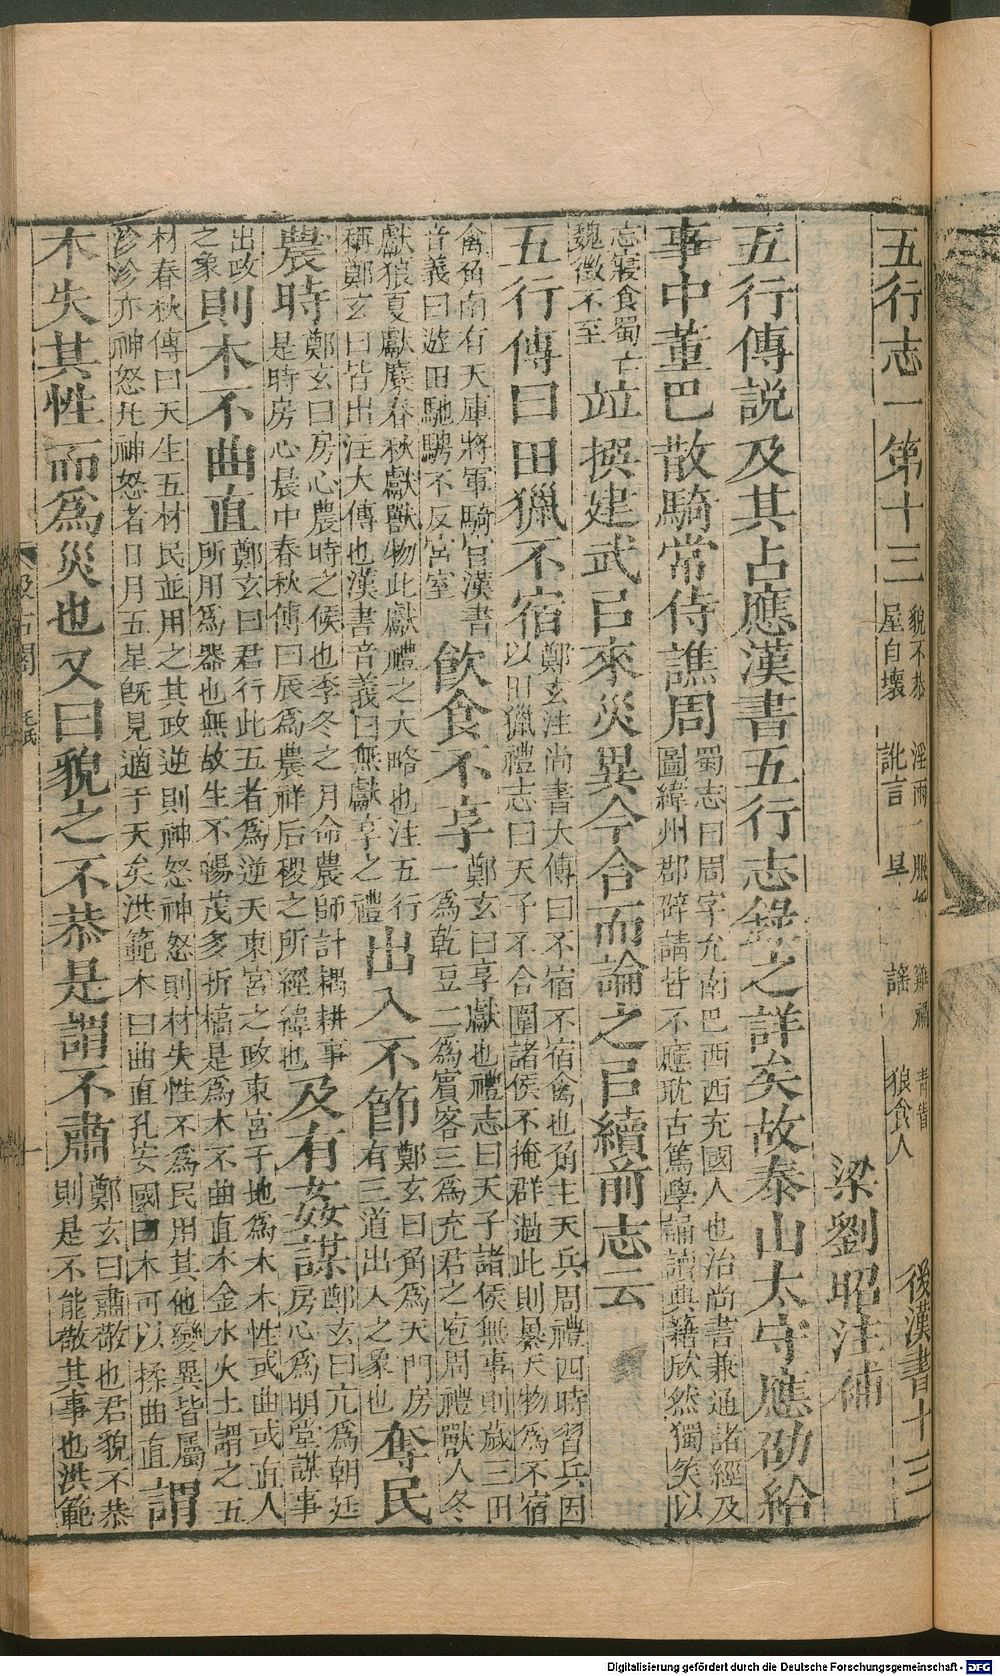 五行志一第十三 貌不恭 淫雨 服妖 雞禍 青眚 屋自壞 訛言 旱 謠 狼食人 後漢書十三
梁劉昭注補
五行傳說及其占應漢書五行志錄之詳矣故泰山太守應劭給
事中董巴散騎常侍譙周蜀志曰周字允南巴西西充國人也治尚書兼通諸經及圖緯州郡辟請皆不應耽古篤學誦讀典籍欣然獨笑以
忘寢食蜀亡魏徵不至竝撰建武㠯來災異今合而論之㠯續前志云
五行傳曰田獵不宿鄭玄注尚書大傳曰不宿不宿禽也角主天兵周禮四時習兵因以田獵禮志曰天子不合圍諸侯不掩群過此則暴天物爲不宿
禽角南有天庫將軍騎官漢書音義曰遊田馳騁不反宮室飲食不享鄭玄曰享獻也禮志曰天子諸侯無事則歲三田一爲乾豆二爲賓客三爲充君之庖周禮獸人冬
獻狼夏獻麋春秋獻獸物此獻禮之大略也注五行稱鄭玄曰皆出注大傳也漢書音義曰無獻享之禮出入不節鄭玄曰角爲天門房有三道出入之象也奪民
農時鄭玄曰房心農時之候也季冬之月命農師計耦耕事是時房心晨中春秋傳曰辰爲農祥后稷之所經緯也及有姦謀鄭玄曰亢爲朝廷房心爲明堂謀事
出政之象則木不曲直鄭玄曰君行此五者爲逆天東宮之政東宮于地爲木木性或曲或直人所用爲器也無故生不暢茂多折槁是爲木不曲直木金水火土謂之五
材春秋傳曰天生五材民並用之其政逆則神怒神怒則材失性不爲民用其他變異皆屬沴沴亦神怒凡神怒者日月五星既見適于天矣洪範木曰曲直孔安國曰木可以揉曲直謂
木失其性而爲災也又曰貌之不恭是謂不肅鄭玄曰肅敬也君貌不恭則是不能敬其事也洪範
汲古閣 毛氏 一
Digitalisierung gefördert durch die Deutsche Forschungsgemeinschaft - DFG